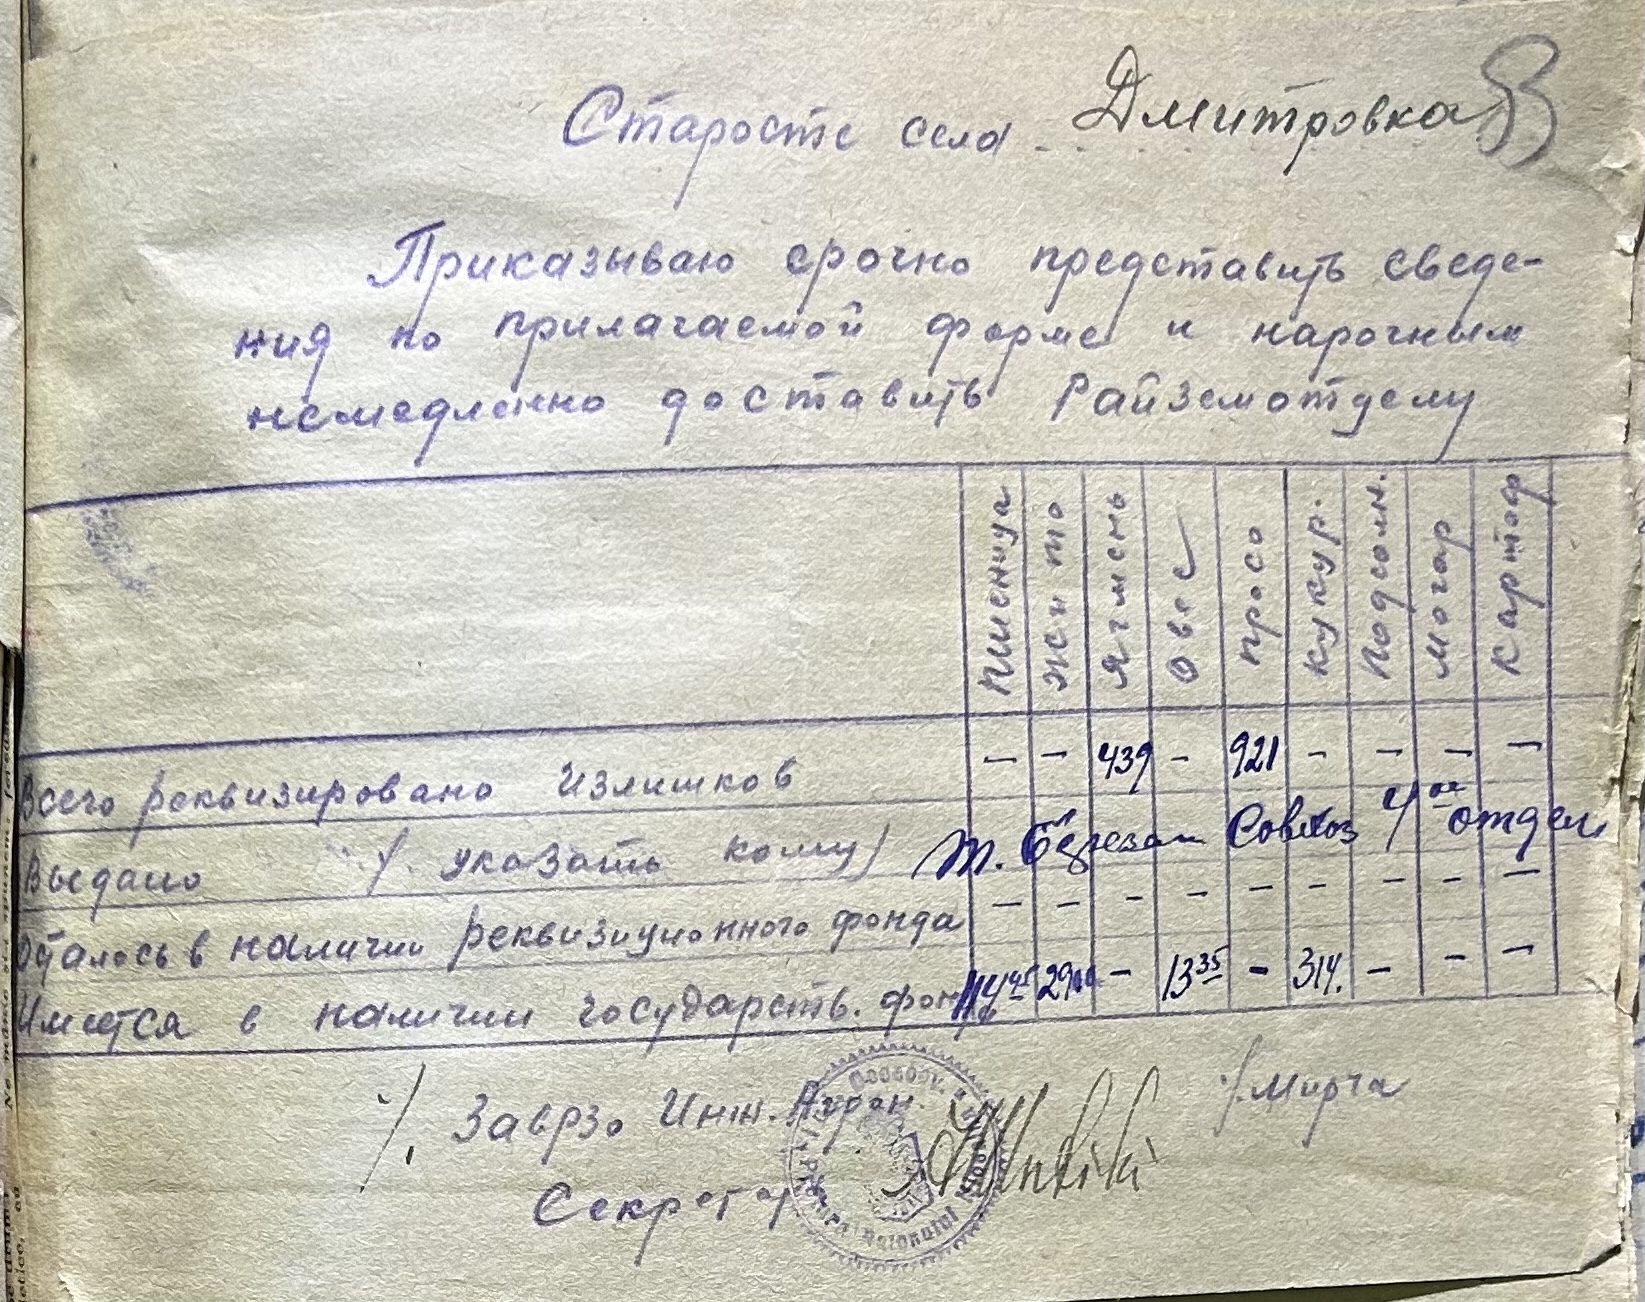 Старосте села Дмитровка
Приказываю срочно представить сведе-
ния по прилагаемой форме и нарочным
немедленно доставить Райземотделу
Пшеница Жито Ячмень Овес Просо Кукур. Подсолн. Могар Картоф
Всего реквизировано излишков — — 439 - 921 - — — —
Выдано /указать кому/ Березан Совхоз 4ое отдел
Осталось в наличии реквизиционного фонда — — — — — — — — —
Имеется в наличии государств. фон — 13 35 - 314. — — —
/. ЗавРЗО Инж. Агрон. /Мирча
Секретар